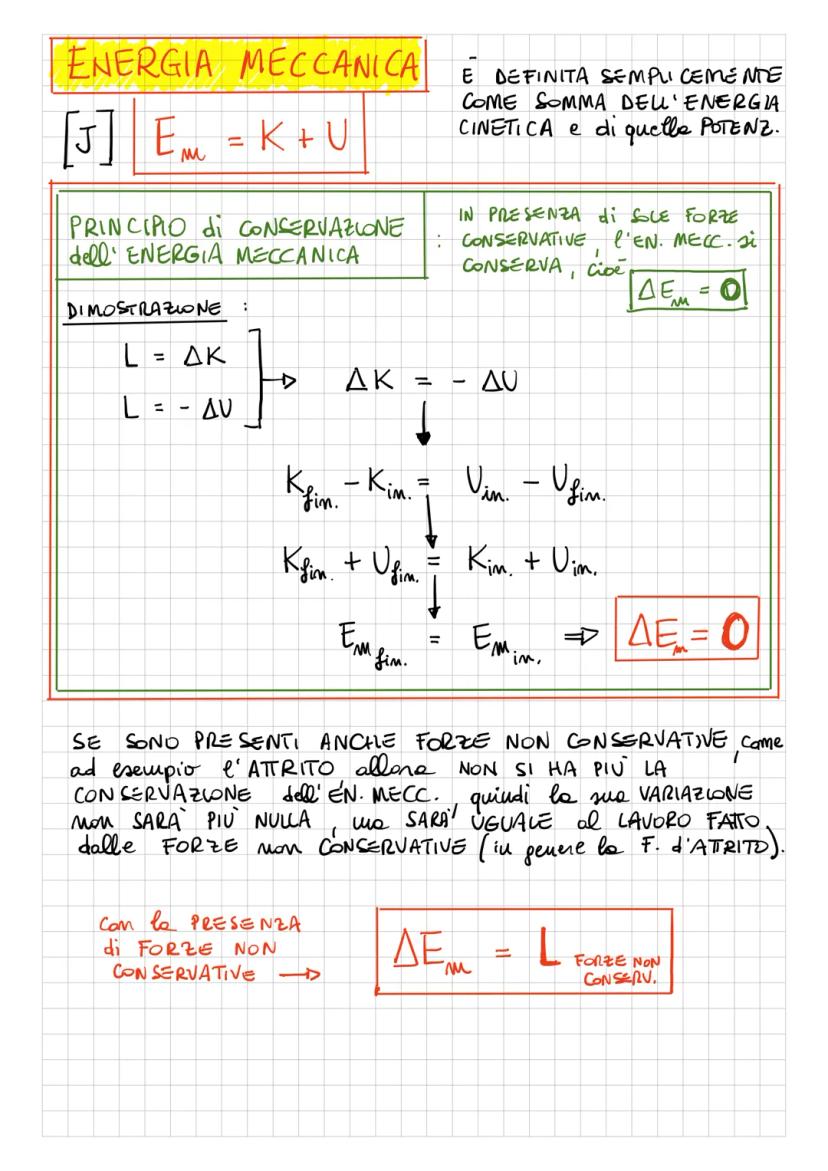 ENERGIA MECCANICA
È DEFINITA SEMPLICEMENTE
COME SOMMA DELL'ENERGIA
CINETICA e di quella POTENZ.
[J] Em = K + U
PRINCIPIO di CONSERVAZIONE
dell'ENERGIA MECCANICA
: IN PRESENZA di SOLE FORZE
CONSERVATIVE, l'EN. MECC. si
CONSERVA, cioè
ΔEm = 0
DIMOSTRAZIONE :
L = ΔK
L = - ΔU
ΔK = - ΔU
Kfin. - Kin. = Uin. - Ufin.
Kfin. + Ufin. = Kin. + Uin.
Em fin. = Em in. ⇒ ΔEm = 0
SE SONO PRESENTI ANCHE FORZE NON CONSERVATIVE, come
ad esempio l'ATTRITO allora NON SI HA PIÙ LA
CONSERVAZIONE dell'EN. MECC., quindi la sua VARIAZIONE
non SARÀ PIÙ NULLA, ma SARÀ UGUALE al LAVORO FATTO
dalle FORZE non CONSERVATIVE (in genere la F. d'ATTRITO).
Con la PRESENZA
di FORZE NON
CONSERVATIVE →
ΔEm = L FORZE NON
CONSERV.